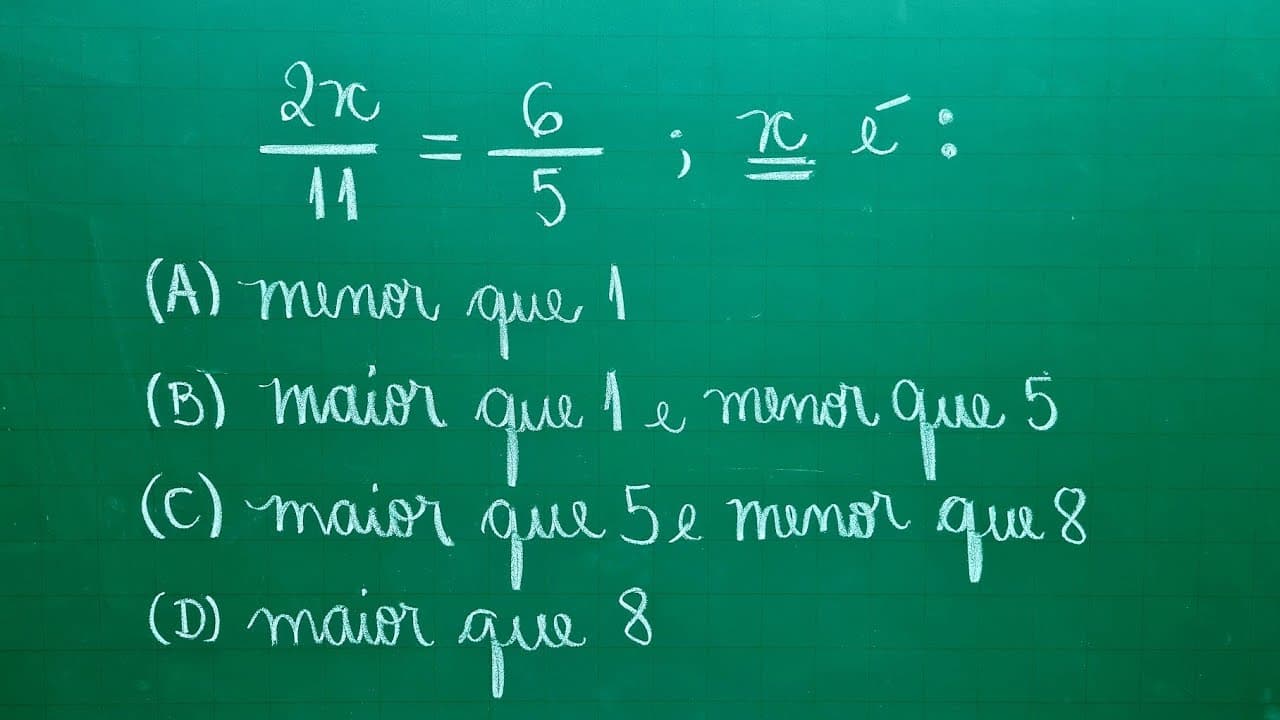 2x/11 = 6/5 ; x é:
(A) menor que 1
(B) maior que 1 e menor que 5
(C) maior que 5 e menor que 8
(D) maior que 8